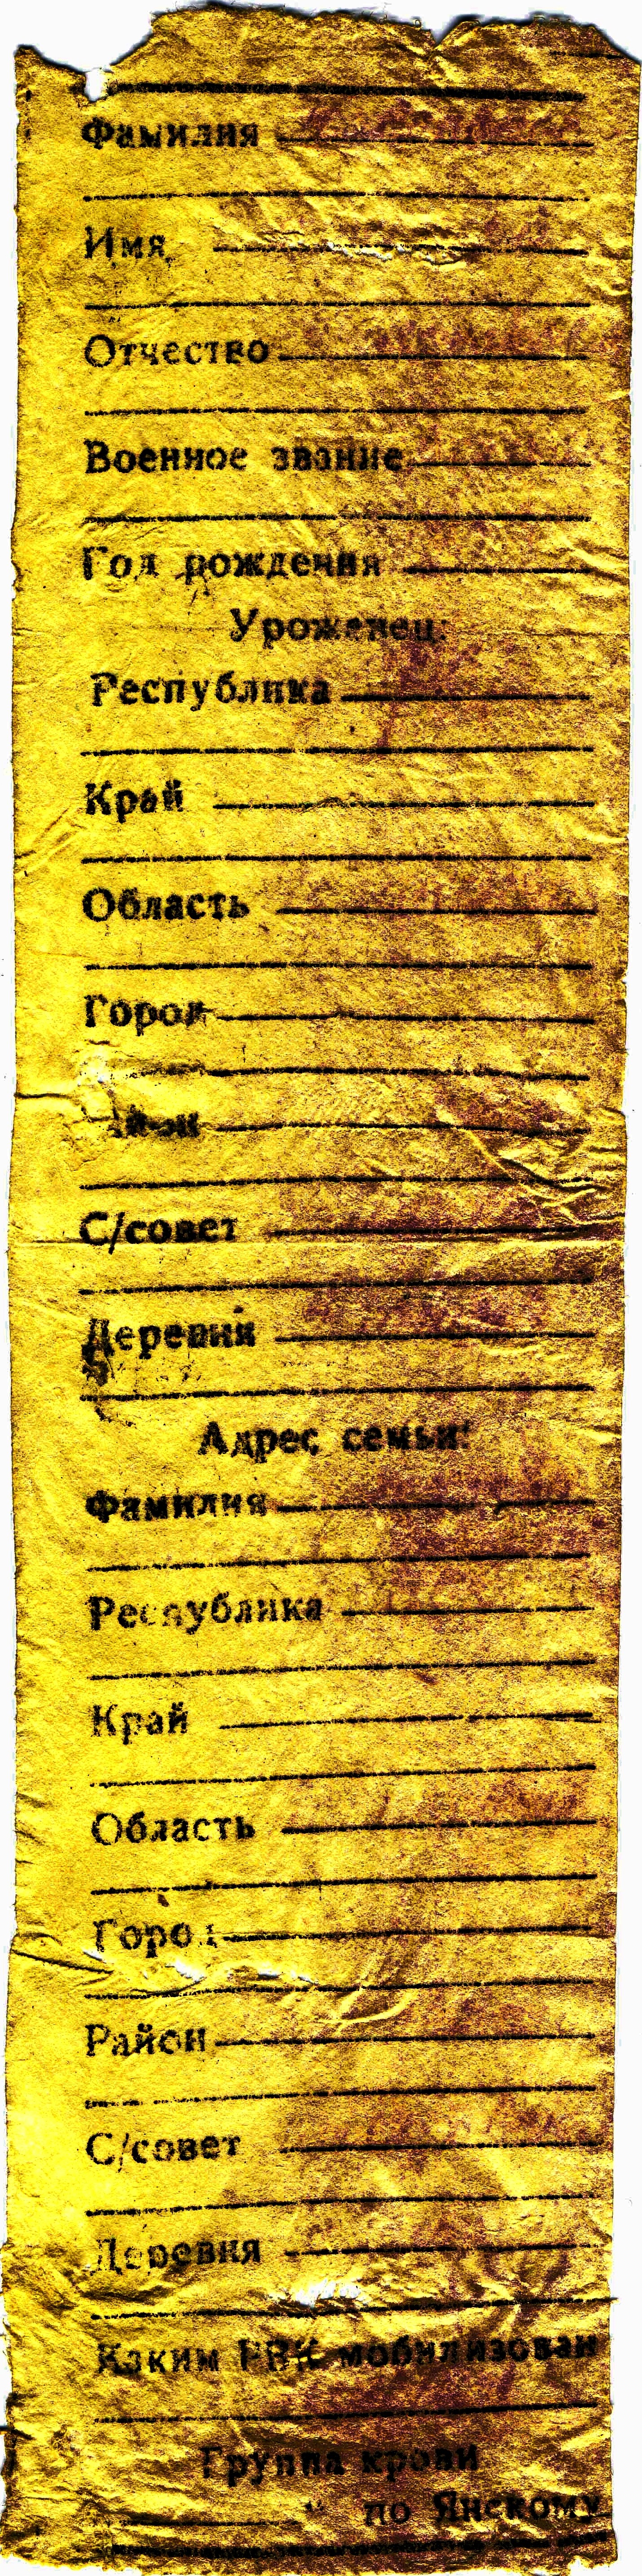 Фамилия
Имя
Отчество
Военное звание
Год рождения
Уроженец:
Республика
Край
Область
Город
Район
С/совет
Деревни
Адрес семьи:
Фамилия
Республика
Край
Область
Город
Район
С/совет
Деревня
Каким РВК мобилизован
Группа крови
по Янскому